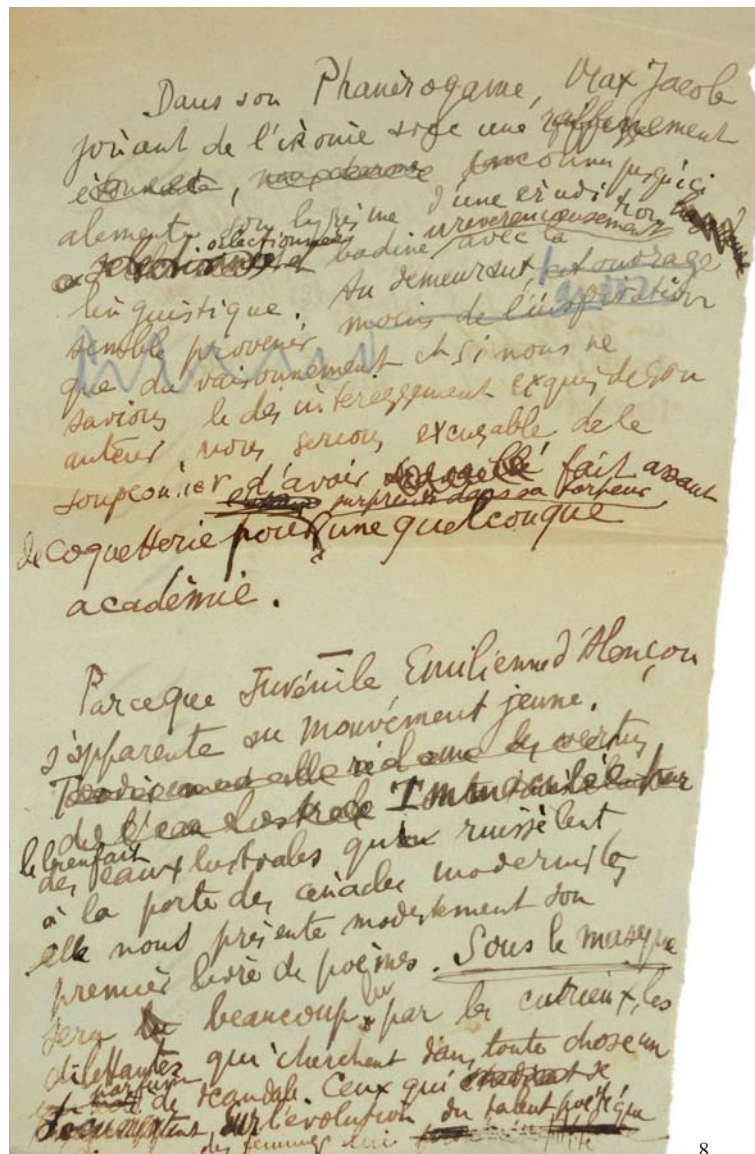 Dans son Phanérogame, Max Jacob
jouant de l'ironie avec une raffinement
étonnante, inconnu jusqu'ici
alimente son lyrisme d'une érudition
sélectionnée
et badine irreverencieusement avec la
linguistique. Au demeurant, cet ouvrage
semble provenir moins de l'inspiration
que du raisonnement et si nous ne
savions le desinteressement exquis de son
auteur nous serions excusable de le
soupçonner d'avoir fait assaut
surpris dans sa torpeur
de coquetterie pour une quelconque
académie.
Parceque Juvénile Emilienne d'Alençon
s'apparente au mouvement jeune.
réclame les vertus
de l'eau lustrale
le bienfait
des eaux lustrales qui ruissèlent
à la porte des cénacles modernistes
elle nous présente modestement son
premier livre de poèmes. Sous le masque
sera lu beaucoup par les curieux, les
dilettantes qui cherchent dans toute chose un
parfum de scandale. Ceux qui se
documentent sur l'évolution du talent poétique
des femmes lui
8